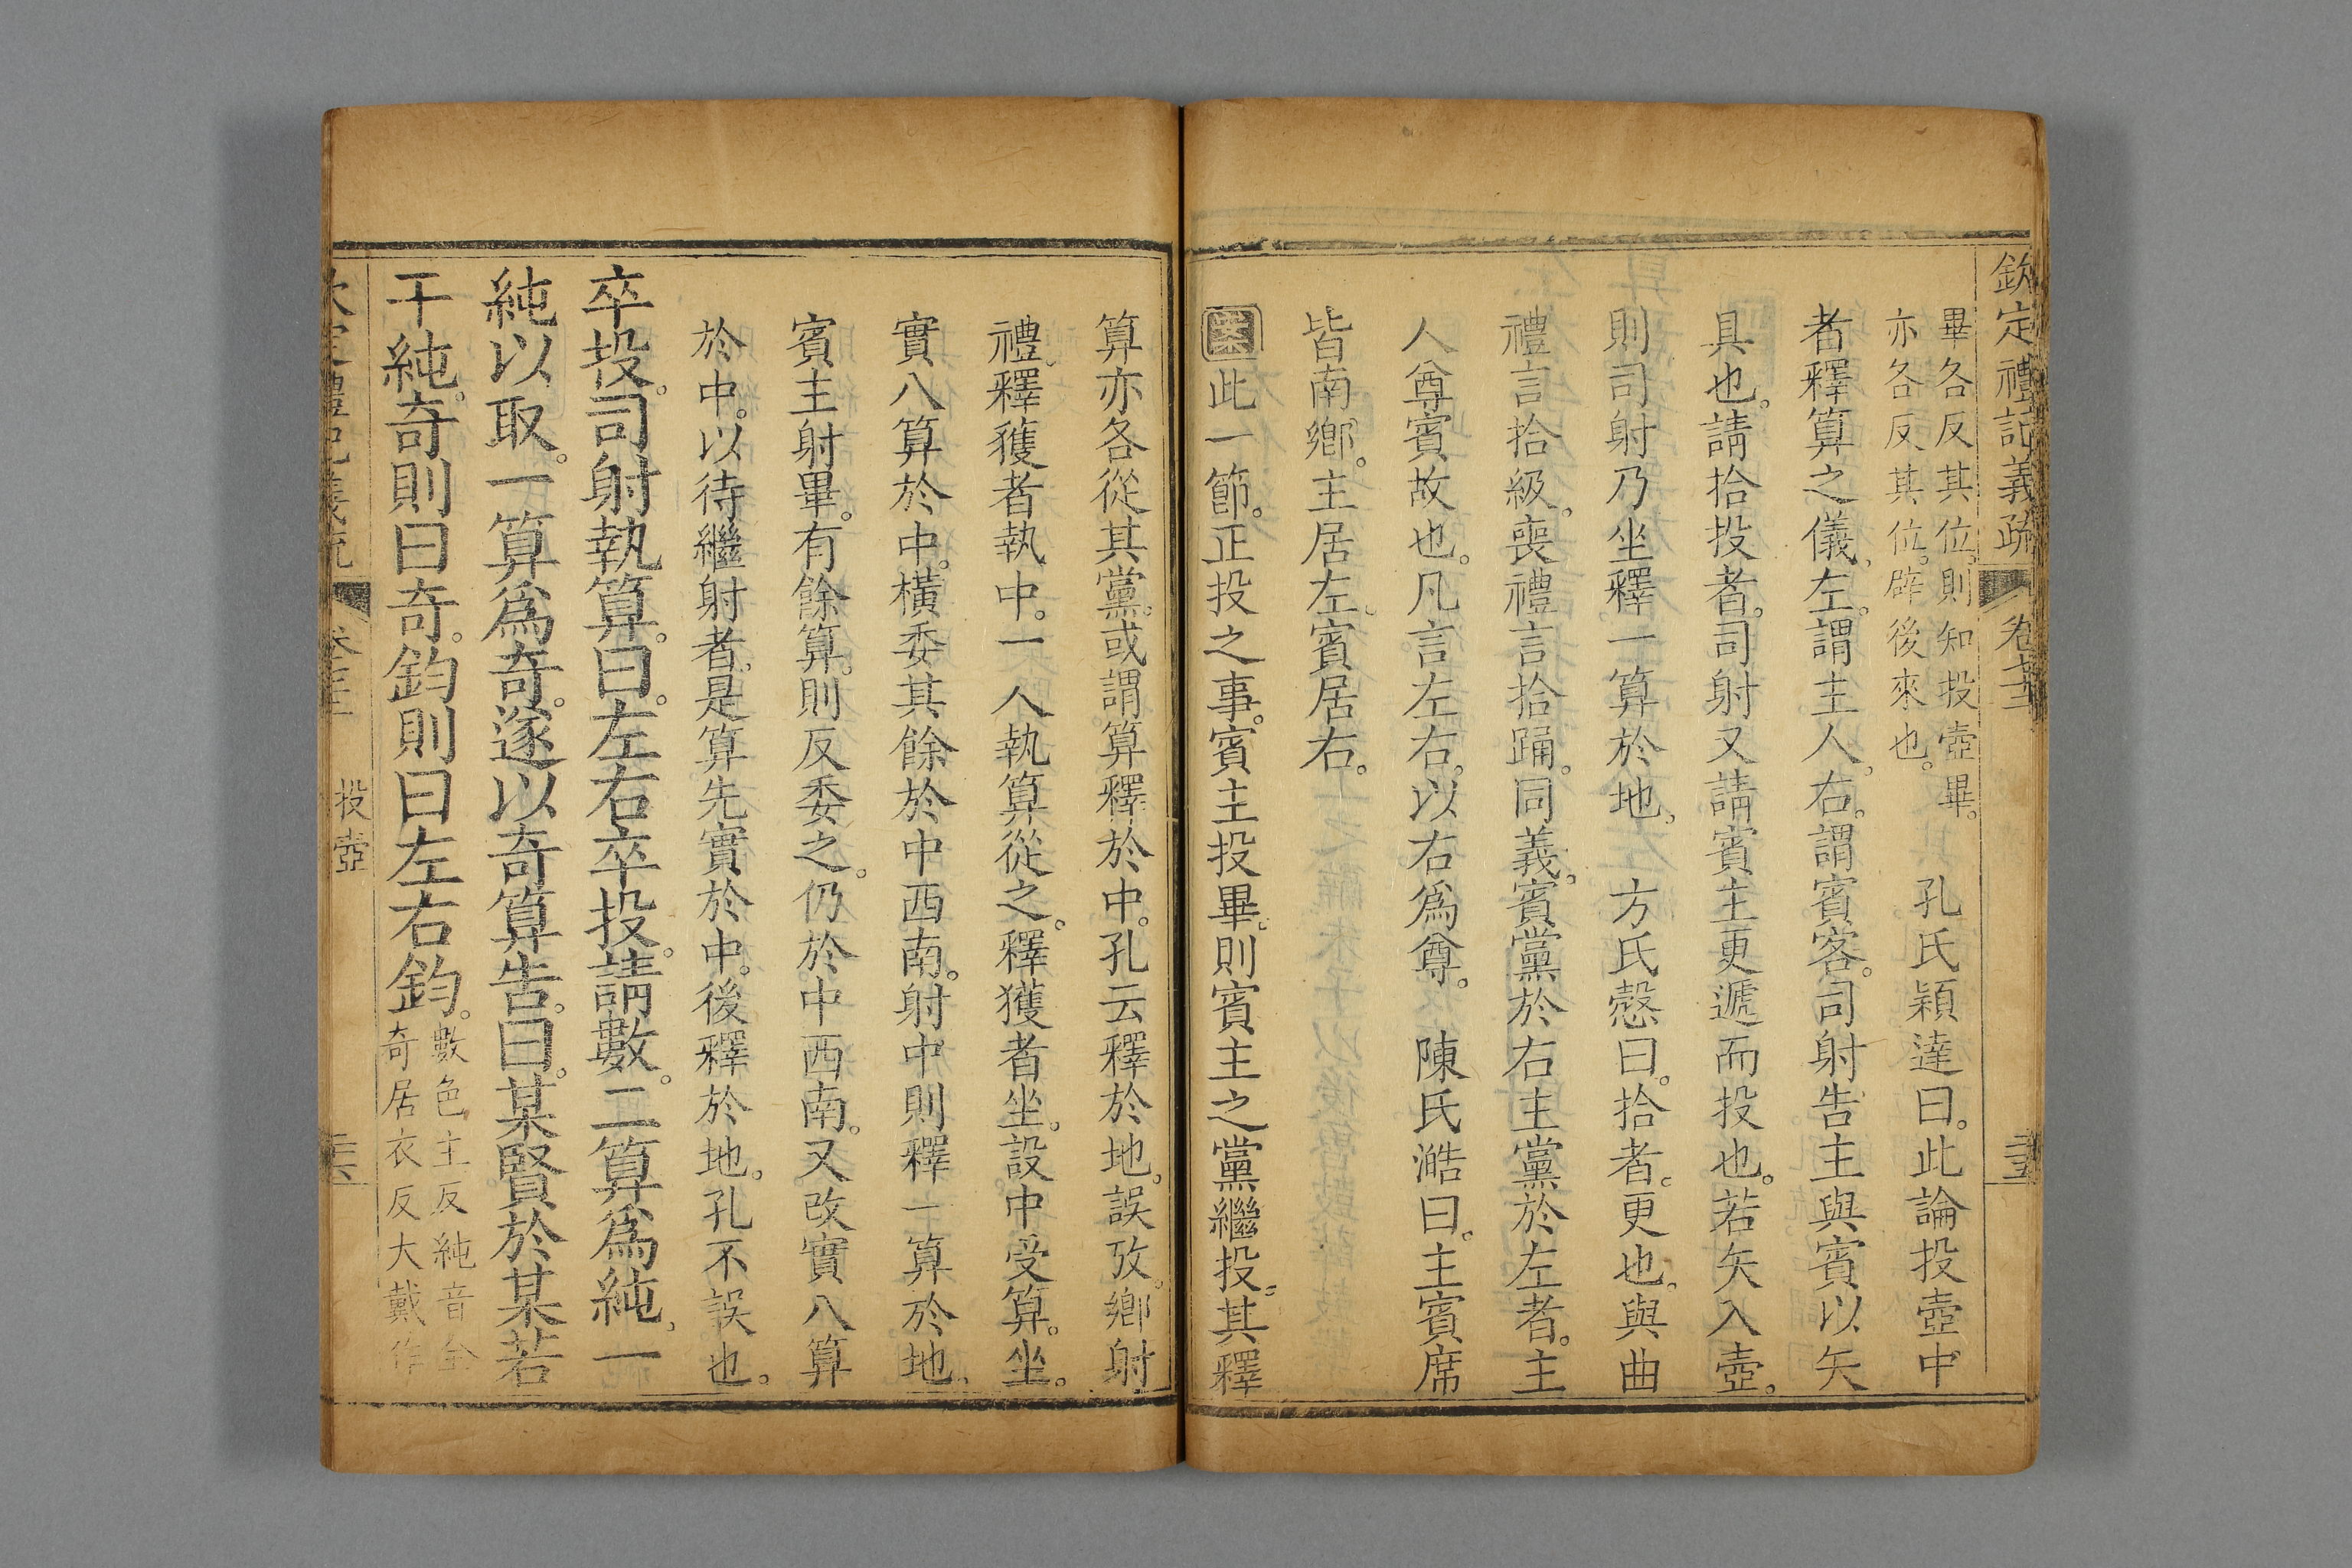 欽定禮記義疏 卷 三五
畢各反其位。則知投壺畢。
亦各反其位。辟後來也。
孔氏穎達曰。此論投壺中
者釋算之儀。左。謂主人。右。謂賓客。司射告主與賓以矢
具也。請拾投者。司射又請賓主更遞而投也。若矢入壺。
則司射乃坐釋一算於地。 方氏慤曰。拾者。更也。與曲
禮言拾級。喪禮言拾踊。同義。賓黨於右主黨於左者。主
人尊賓故也。凡言左右。以右爲尊。 陳氏澔曰。主賓席
皆南鄉。主居左。賓居右。
案此一節。正投之事。賓主投畢。則賓主之黨繼投。其釋
算亦各從其黨。或謂算釋於中。孔云釋於地。誤攷。鄉射
禮。釋獲者執中。一人執算從之。釋獲者坐。設中受算。坐。
實八算於中。橫委其餘於中西南。射中則釋一算於地。
賓主射畢。有餘算。則反委之。仍於中西南。又改實八算
於中。以待繼射者。是算先實於中。後釋於地。孔不誤也。
卒投。司射執算。曰。左右卒投。請數。二算爲純。一
純以取。一算爲奇。遂以奇算告。曰。某賢於某若
干純。奇則曰奇。鈞則曰左右鈞。
數色主反純音全
奇居衣反大戴作
禮記義疏 投壺